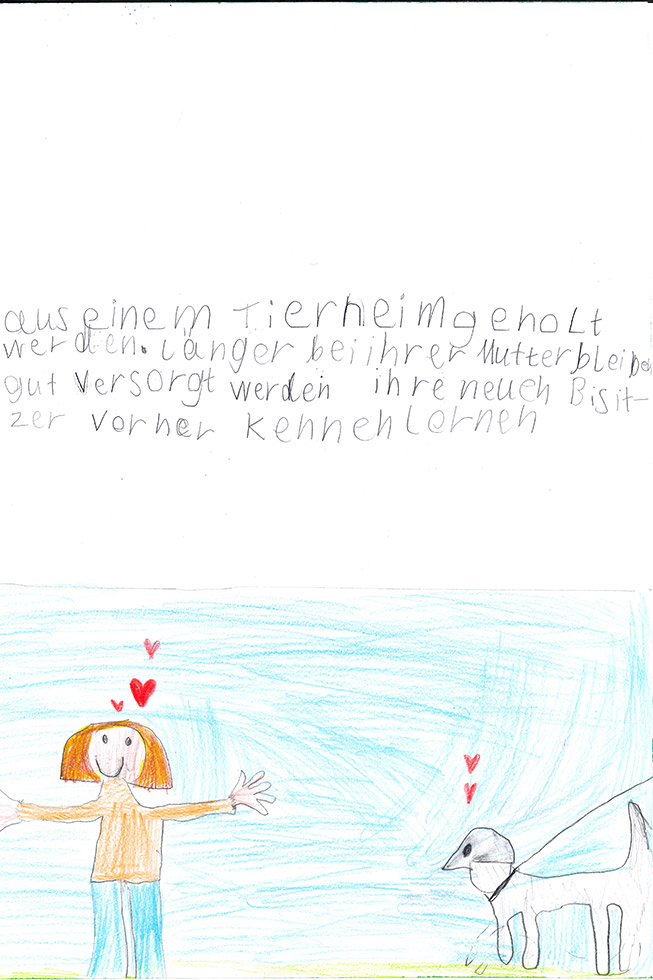 aus einem Tierheim geholt
werden. länger bei ihrer Mutter bleiben
gut versorgt werden ihre neuen Bisit-
zer vorher kennenlernen